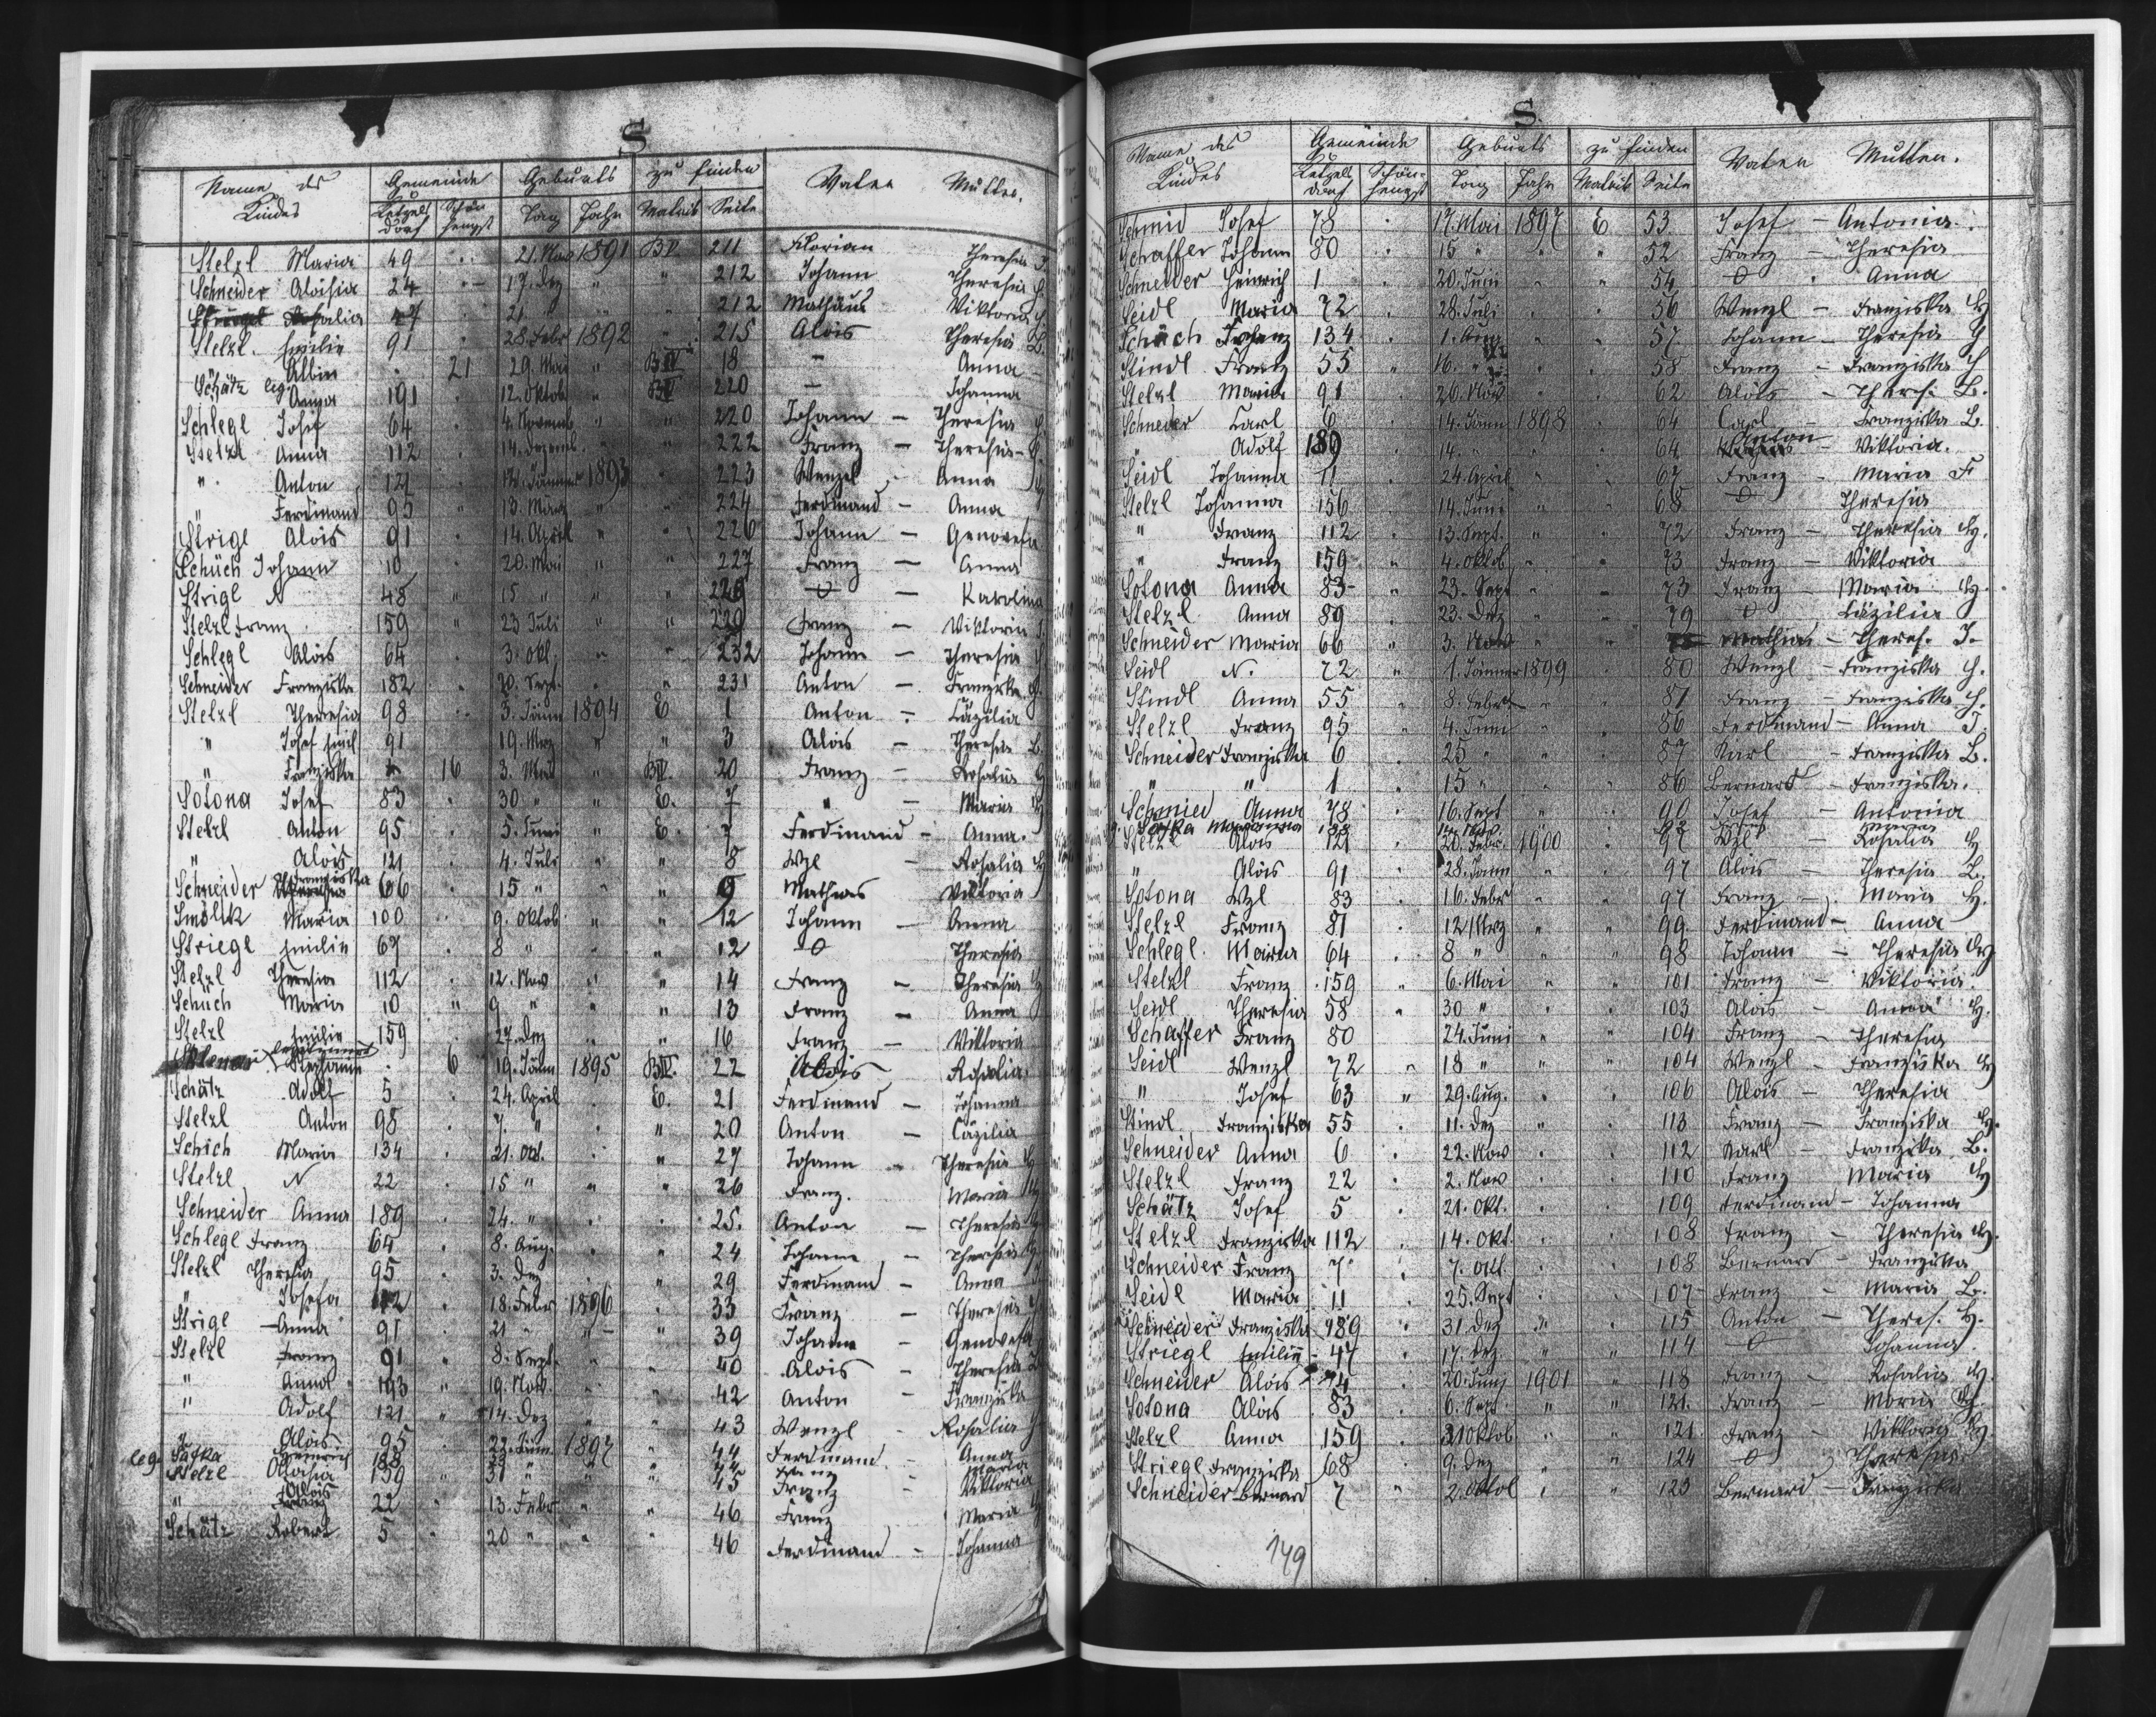 S
Name des Kindes Gemeinde Geburts zu finden Vater Mutter.
Ketzelsdorf Schönhengst Tag Jahr Matrik Seite
Stelzl Maria 49 21. Nov 1891 BV 211 Florian Theresia
Schneider Aloisia 24 17. Dez " " 212 Johann Theresia
47 21 " " 212 Mathäus Viktoria
Stelzl Emilie 91 28. Febr 1892 " 215 Alois Theresia B.
Albin 21 29. Mai " 18 – Anna
Schätz leg. Anna 191 12. Oktob " 220 – Johanna
Schlegl Josef 64 4. Novemb " " 220 Johann – Theresia
Stelzl Anna 112 14. Dezemb. " 222 Franz – Theresia
" Anton 121 12. Jänner 1893 " 223 Wenzel – Anna
" Ferdinand 95 " 13. März " " 224 Ferdinand – Anna
Strigl Alois 91 14. April " " 226 Johann – Genovefa
Schüch Johann 10 20. Mai " " 227 Franz – Anna
Strigl N 48 " 15 " " " 226 O – Karolina
Stelzl Franz 159 " 23 Juli " " 229 Franz – Viktoria
Schlegl Alois 64 3. Okt. " " 232 Johann – Theresia
Schneider Franziska 182 20. Sept. " " 231 Anton – Franziska
Stelzl Theresia 98 3. Jänn 1894 E 1 Anton – Cäzilia
" Josef Emil 91 19. Mrz " " 3 Alois – Theresia B.
" Franziska 16 3. Mai " BIV. 20 Franz – Rosalia
Sotona Josef 83 30 " " E. 7 " – Maria
Stelzl Anton 95 5. Juni " E. 7 Ferdinand – Anna.
" Alois 121 4. Juli " " 8 Wzl – Rosalia
Schneider Franziska 66 15 " " " 9 Mathias Viktoria
Smolik Maria 100 9. Oktob " " 12 Johann – Anna
Striegl Emilie 69 8 " " 12 O Theresia
Stelzl Theresia 112 12. Nov " " 14 Franz – Theresia
Schuch Maria 10 " 9 " " 13 Franz – Anna
Stelzl Emilie 159 27. Dez " " 16 Franz – Viktoria
Stephanie 6 19. Jänn 1895 BIV. 22 Alois – Rosalia
Schätz Adolf 5 24. April E. 21 Ferdinand – Johanna
Stelzl Anton 98 7. " " 20 Anton – Cäzilia
Schich Maria 134 21. Okt. " 27 Johann – Theresia
Stelzl N 22 15 " " " 26 Franz. Maria
Schneider Anna 189 24. " 25. Anton – Theresia
Schlegl Franz 64 8. Aug. " " 24 Johann – Theresia
Stelzl Theresia 95 3. Dez " 29 Ferdinand – Anna
" Josefa 112 18. Febr 1896 33 Franz – Theresia
Strigl Anna 91 21 " " 39 Johann – Genovefa
Stelzl Franz 91 8. Sept. " " 40 Alois – Theresia
" Anna 193 " 19. Nov. " 42 Anton – Franziska
" Adolf 121 " 14. Dez " " 43 Wenzl – Rosalia
" Alois 95 22. Jänn 1897 " 44 Ferdinand Anna
leg. Satka Heinrich 188 Franz Maria
Stelzl Aloisia 159 " 31 " " " 45 Franz – Viktoria
" Alois 22 " 13. Febr " " 46 Franz Maria
Schätz Robert 5 20 " " " 46 Ferdinand – Johanna
S
Name des Kindes Gemeinde Geburts zu finden Vater Mutter.
Ketzelsdorf Schönhengst Tag Jahr Matrik Seite
Schmid Josef 78 17. Mai 1897 E 53 Josef – Antonia.
Schaffer Johann 80 15 " " " 52 Franz – Theresia
Schneider Heinrich 1 20. Juni " " 54 O Anna
Seidl Maria 72 28. Juli 56 Wenzl – Franziska H
Schüch Franz 134 1. Aug " " 57 Johann – Theresia H
Stindl Franz 55 " 16. " 58 Franz – Franziska H
Stelzl Maria 91 26. Nov. 62 Alois – Theres. B.
Schneider Carl 6 14. Jänn 1898 64 Carl – Franziska B.
" Adolf 189 14. " " 64 Anton Viktoria.
Seidl Johanna 11 24 April " " 67 Franz – Maria F
Stelzl Johanna 156 14. Juni " 68 O Theresia
" Franz 112 13. Sept. " " 72 Franz – Theresia H.
" Franz 159 " 4. Oktob " " 73 Franz – Viktoria
Sotona Anna 83 " 23. Sept " " 73 Franz – Maria H.
Stelzl Anna 89 23. Dez " 79 O Cäzilia
Schneider Maria 66 " 3. Nov " Mathias – Theres. J.
Seidl N. 72 " 1. Jänner 1899 80 Wenzl – Franziska H.
Stindl Anna 55 8. Febr " 81 Franz – Franziska H.
Stelzl Franz 95 4. Juni " 86 Ferdinand – Anna J
Schneider Franziska 6 25 " " 87 Karl – Franziska B.
" " 1 15 " " 86 Bernard – Franziska.
Schmied Anna 78 16. Sept " 90 Josef – Antonia
Satka Marianna 188
Stelzl Alois 121 20. Febr. 1900 97 Wzl – Rosalia H
" Alois 91 28. Jänn " 97 Alois – Theresia B.
Sotona Wzl 83 16. Febr " " 97 Franz – Maria H.
Stelzl Franz 81 12 Mrz " " 99. Ferdinand – Anna
Schlegl Maria 64 8 " " 98 Johann – Theresia H
Stelzl Franz 159 " 6. Mai " " 101 Franz – Viktoria.
Seidl Theresia 58 " 30 " " " 103 Alois – Anna H.
Schaffer Franz 80 24. Juni " 104 Franz – Theresia
Seidl Wenzl 72 " 18 " " 104 Wenzl – Franziska H
" Josef 63 " 29. Aug. " " 106 Alois – Theresia
Stindl Franziska 55 11. Dez " 113 Franz – Franziska H.
Schneider Anna 6 22. Nov 112 Karl – Franziska B.
Stelzl Franz 22 2. Nov 110 Franz Maria H
Schätz Josef 5 21. Okt. 109 Ferdinand – Johanna
Stelzl Franziska 112 14. Okt. 108 Franz – Theresia H.
Schneider Franz 7 7. Okt 108 Bernard – Franziska
Seidl Maria 11 25. Sept 107 Franz – Maria B.
Schneider Franziska 189 " 31 Dez " 115 Anton – Theres. H.
Striegl Emilie 47 17. Dez " " 114 O Johanna
Schneider Alois 74 20. Juni 1901 118 Franz – Rosalia H
Sotona Alois 83 6. Sept. " " 121. Franz – Maria H.
Stelzl Anna 159 31 Oktob. " 121 Franz – Viktoria H.
Striegl Franziska 68 9. Dez " " 124 O Theresia
Schneider Bernard 7 " 2. Oktob " " 123 Bernard – Franziska
149